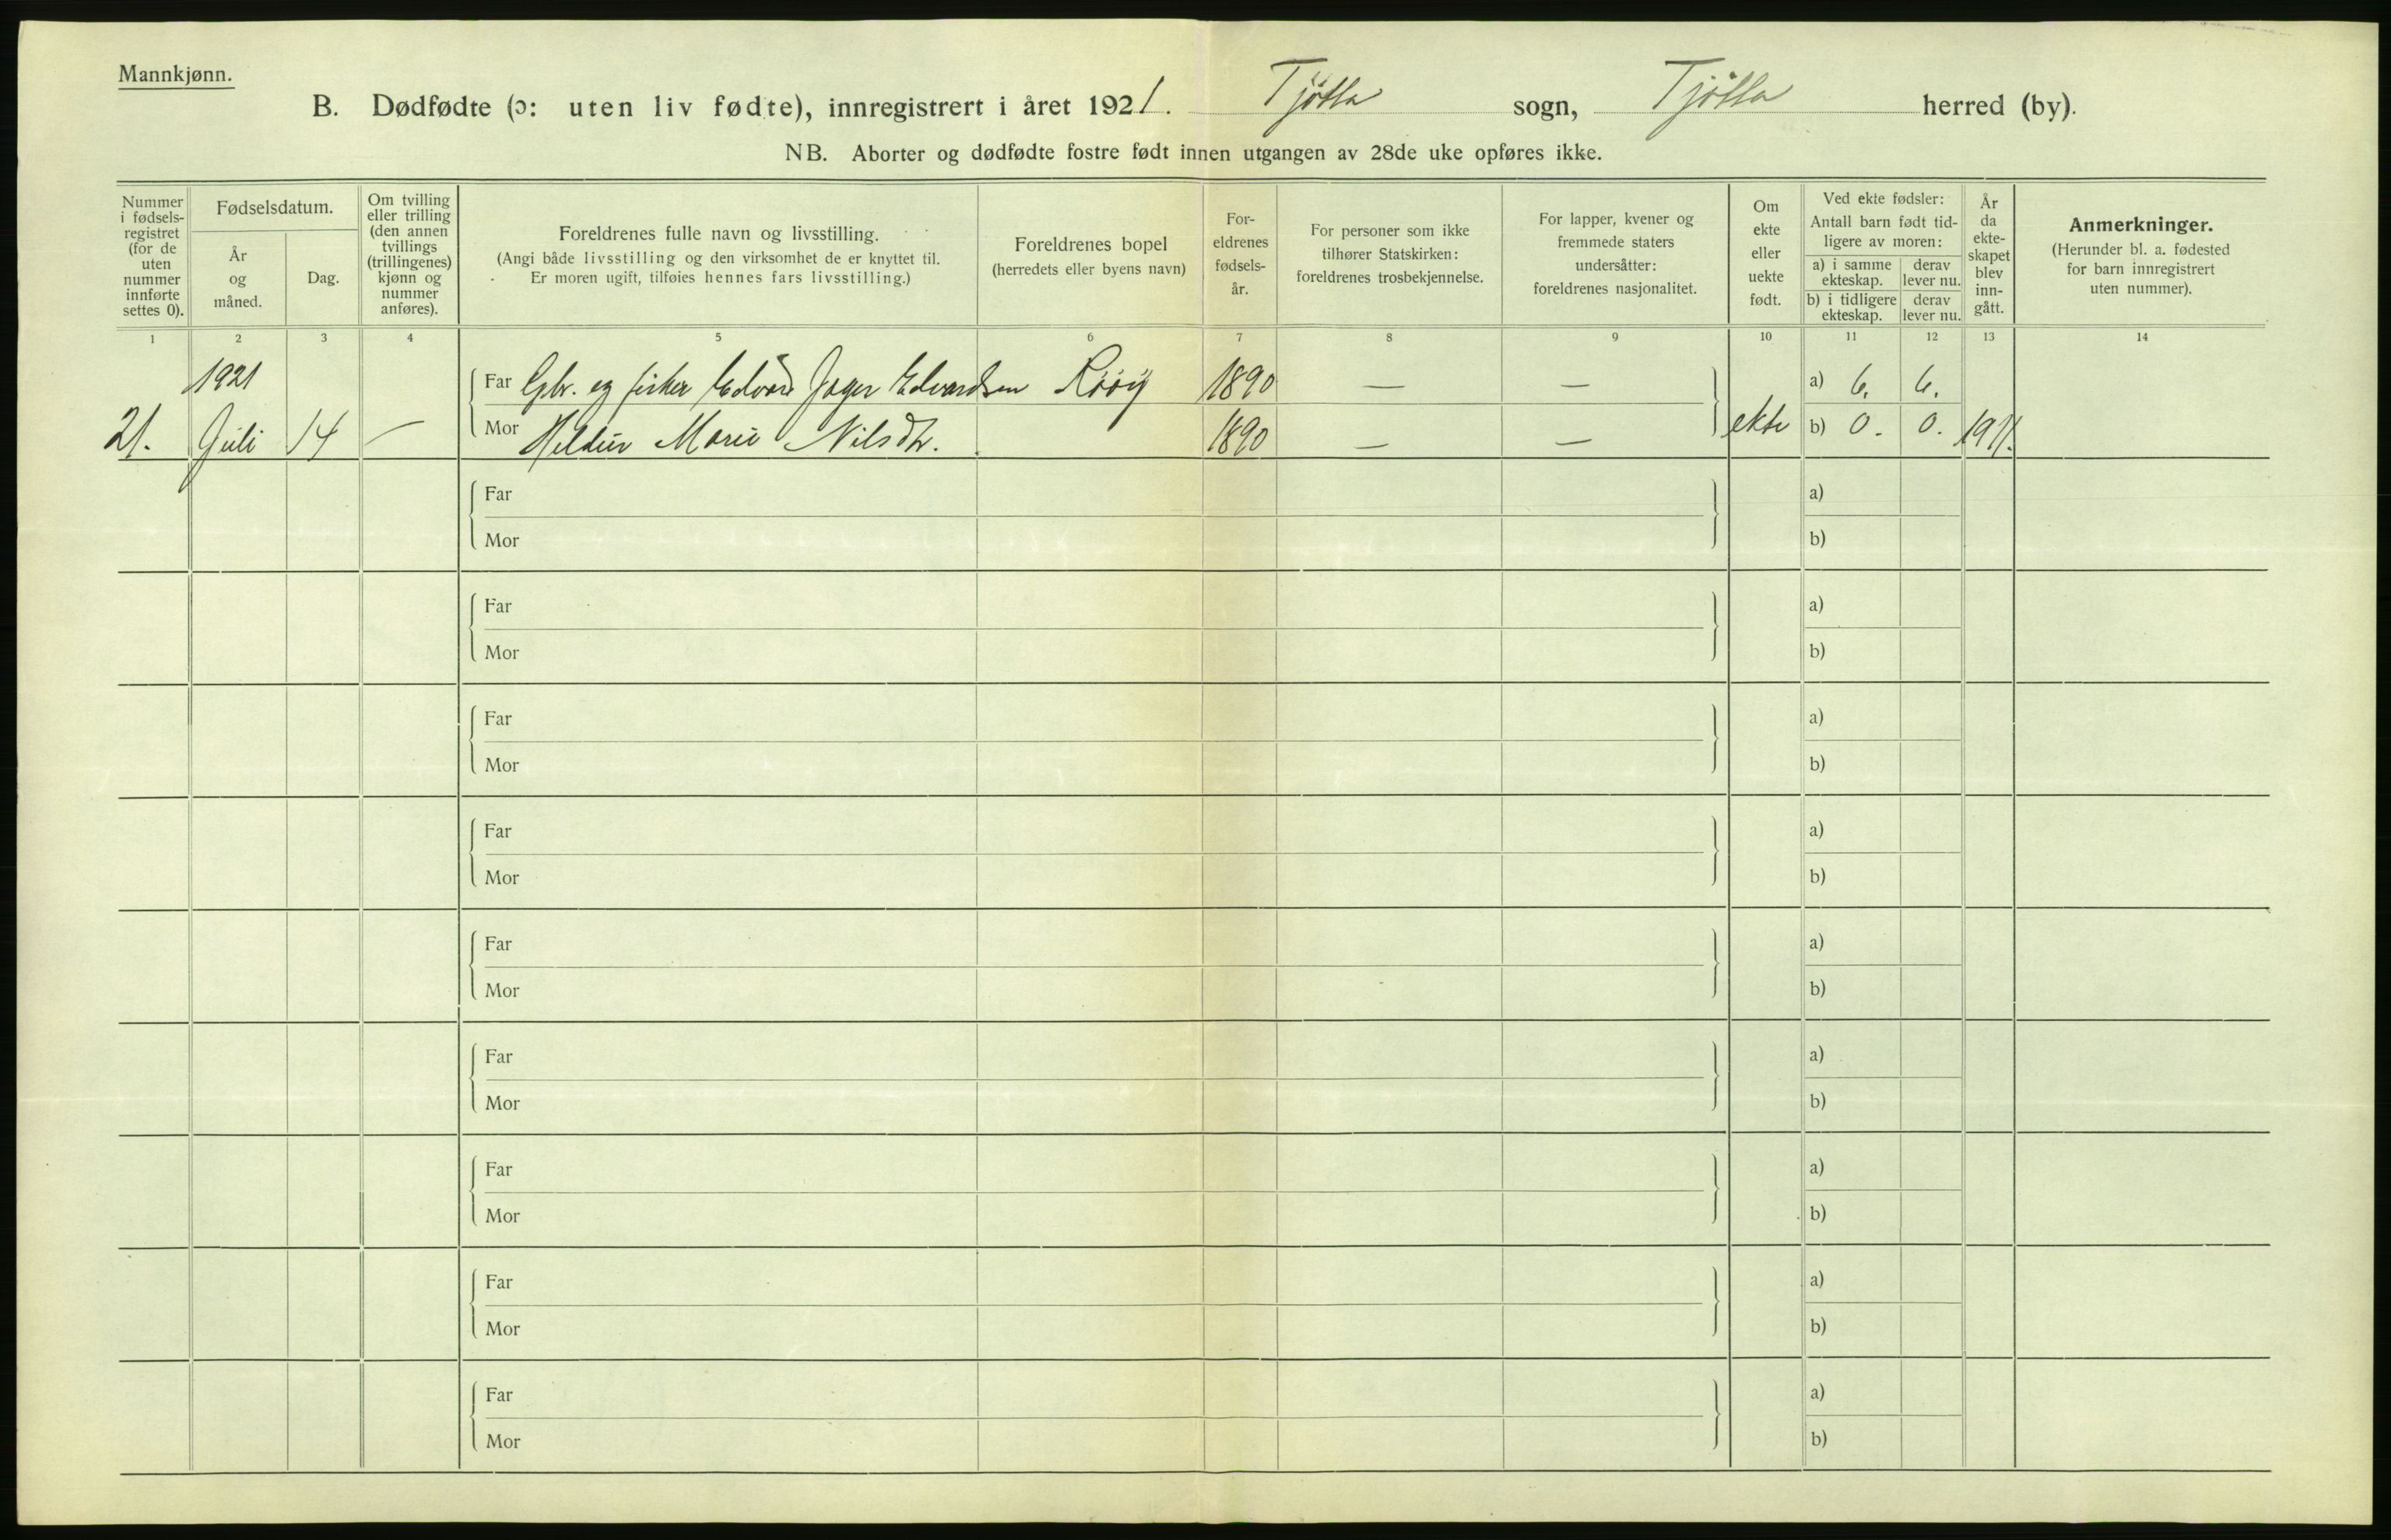 Mannkjønn.
B. Dødfødte (ɔ: uten liv fødte), innregistrert i året 1921. Tjøtta sogn, Tjøtta herred (by).
NB. Aborter og dødfødte fostre født innen utgangen av 28de uke opføres ikke.
Nummer i fødsels-registret (for de uten nummer innførte settes 0).
Fødselsdatum.
År og måned.
Dag.
Om tvilling eller trilling (den annen tvillings (trillingenes) kjønn og nummer anføres).
Foreldrenes fulle navn og livsstilling.
(Angi både livsstilling og den virksomhet de er knyttet til.
Er moren ugift, tilføies hennes fars livsstilling.)
Foreldrenes bopel
(herredets eller byens navn)
For-eldrenes fødsels-år.
For personer som ikke tilhører Statskirken: foreldrenes trosbekjennelse.
For lapper, kvener og fremmede staters undersåtter: foreldrenes nasjonalitet.
Om ekte eller uekte født.
Ved ekte fødsler:
Antall barn født tid-ligere av moren:
a) i samme ekteskap.
derav lever nu.
b) i tidligere ekteskap.
derav lever nu.
År da ekte-skapet blev inn-gått.
Anmerkninger.
(Herunder bl. a. fødested for barn innregistrert uten nummer).
1 2 3 4 5 6 7 8 9 10 11 12 13 14
1921 Far Gbr. og fisker Edvard Jager Edvardsen 1890 — — a) 6. 6.
21. Juli 14 — Mor Marie Nilsdtr. 1890 — — ekte b) 0. 0. 1911.
Far a)
Mor b)
Far a)
Mor b)
Far a)
Mor b)
Far a)
Mor b)
Far a)
Mor b)
Far a)
Mor b)
Far a)
Mor b)
Far a)
Mor b)
Far a)
Mor b)